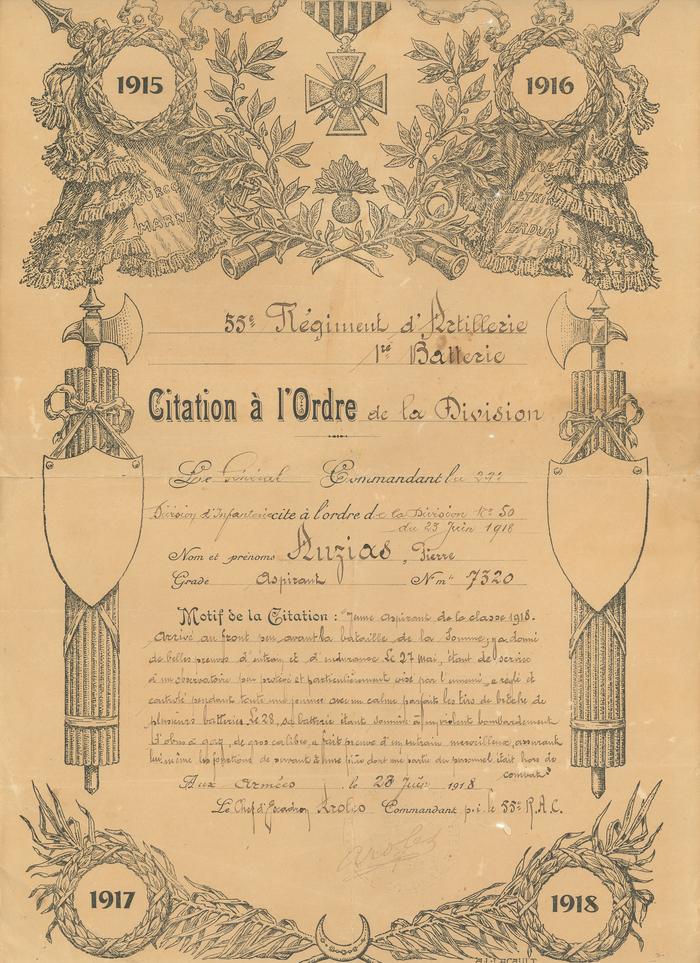 1915
1916
OURCQ
MARNE
VERDUN
55e Régiment d'Artillerie
1re Batterie
Citation à l'Ordre de la Division
Le Général Commandant la
Division d'Infanterie cite à l'ordre de la Division No 50
du 23 Juin 1918
Nom et prénoms Auzias, Pierre
Grade Aspirant No mle 7320
Motif de la Citation : "Jeune aspirant de la classe 1918.
Arrivé au front peu avant la bataille de la Somme, y a donné
de belles preuves d'entrain et d'endurance. Le 27 mai, étant de service
d'un observatoire peu protégé et particulièrement visé par l'ennemi, a réglé et
contrôlé pendant toute une journée avec un calme parfait les tirs de brèche de
plusieurs batteries. Le 28, sa batterie étant soumise à un violent bombardement
d'obus à gaz, de gros calibre, a fait preuve d'un entrain merveilleux, assurant
lui même les fonctions de servant à une pièce dont une partie du personnel était hors de
combat"
Aux Armées, le 28 Juin 1918
Le Chef d'Escadron Aroles Commandant p.i. le 55e R.A.C.
Aroles
1917
1918